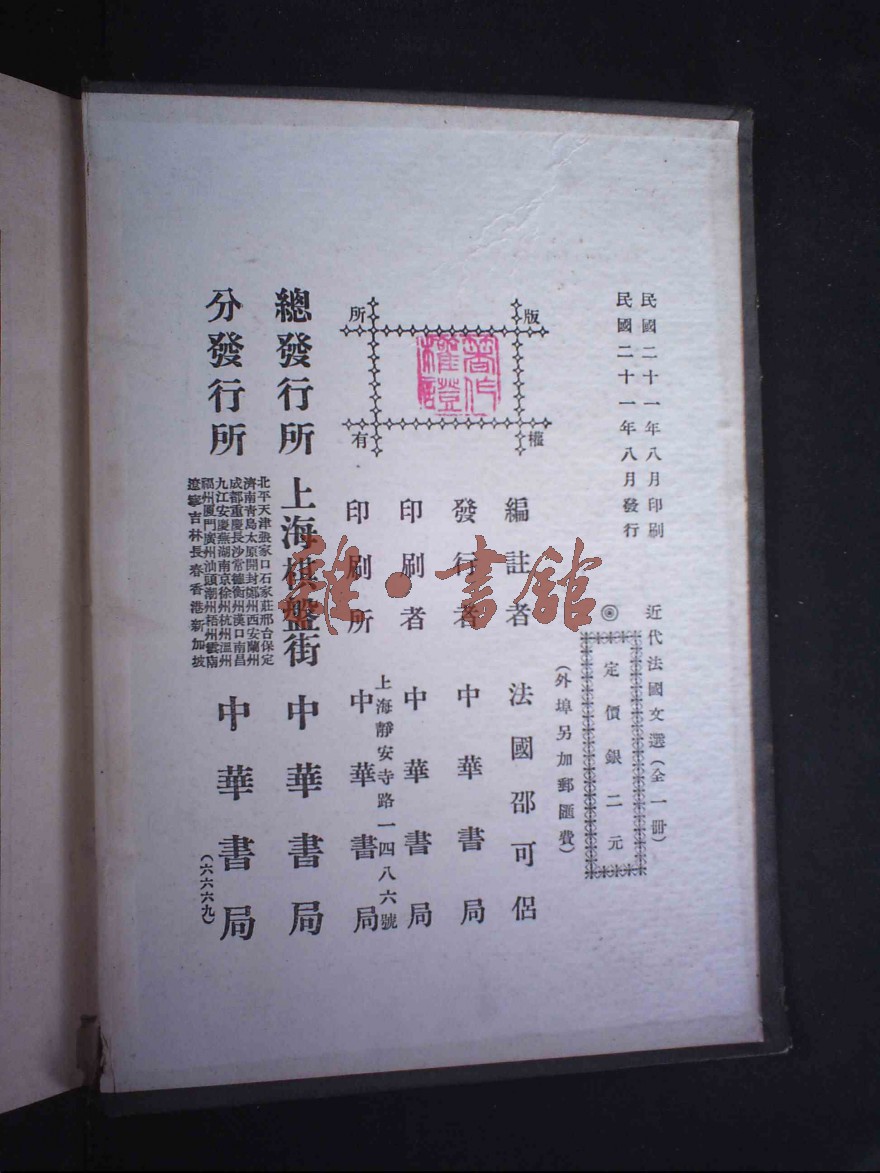 民國二十一年八月印刷
民國二十一年八月發行
近代法國文選(全一冊)
◉定價銀二元
(外埠另加郵匯費)
版權所有
著作權證
編註者 法國邵可侶
發行者 中華書局
印刷者 中華書局
上海靜安寺路一四八六號
印刷所 中華書局
總發行所 上海棋盤街 中華書局
分發行所 中華書局
北平天津張家口石家莊邢台保定
濟南青島太原開封鄭州西安蘭州
成都重慶長沙常德衡州漢口南昌
九江安慶蕪湖南京徐州杭州溫州
福州厦門廣州汕頭潮州梧州雲南
遼寧吉林長春香港新加坡
(六六六九)
雜·書館